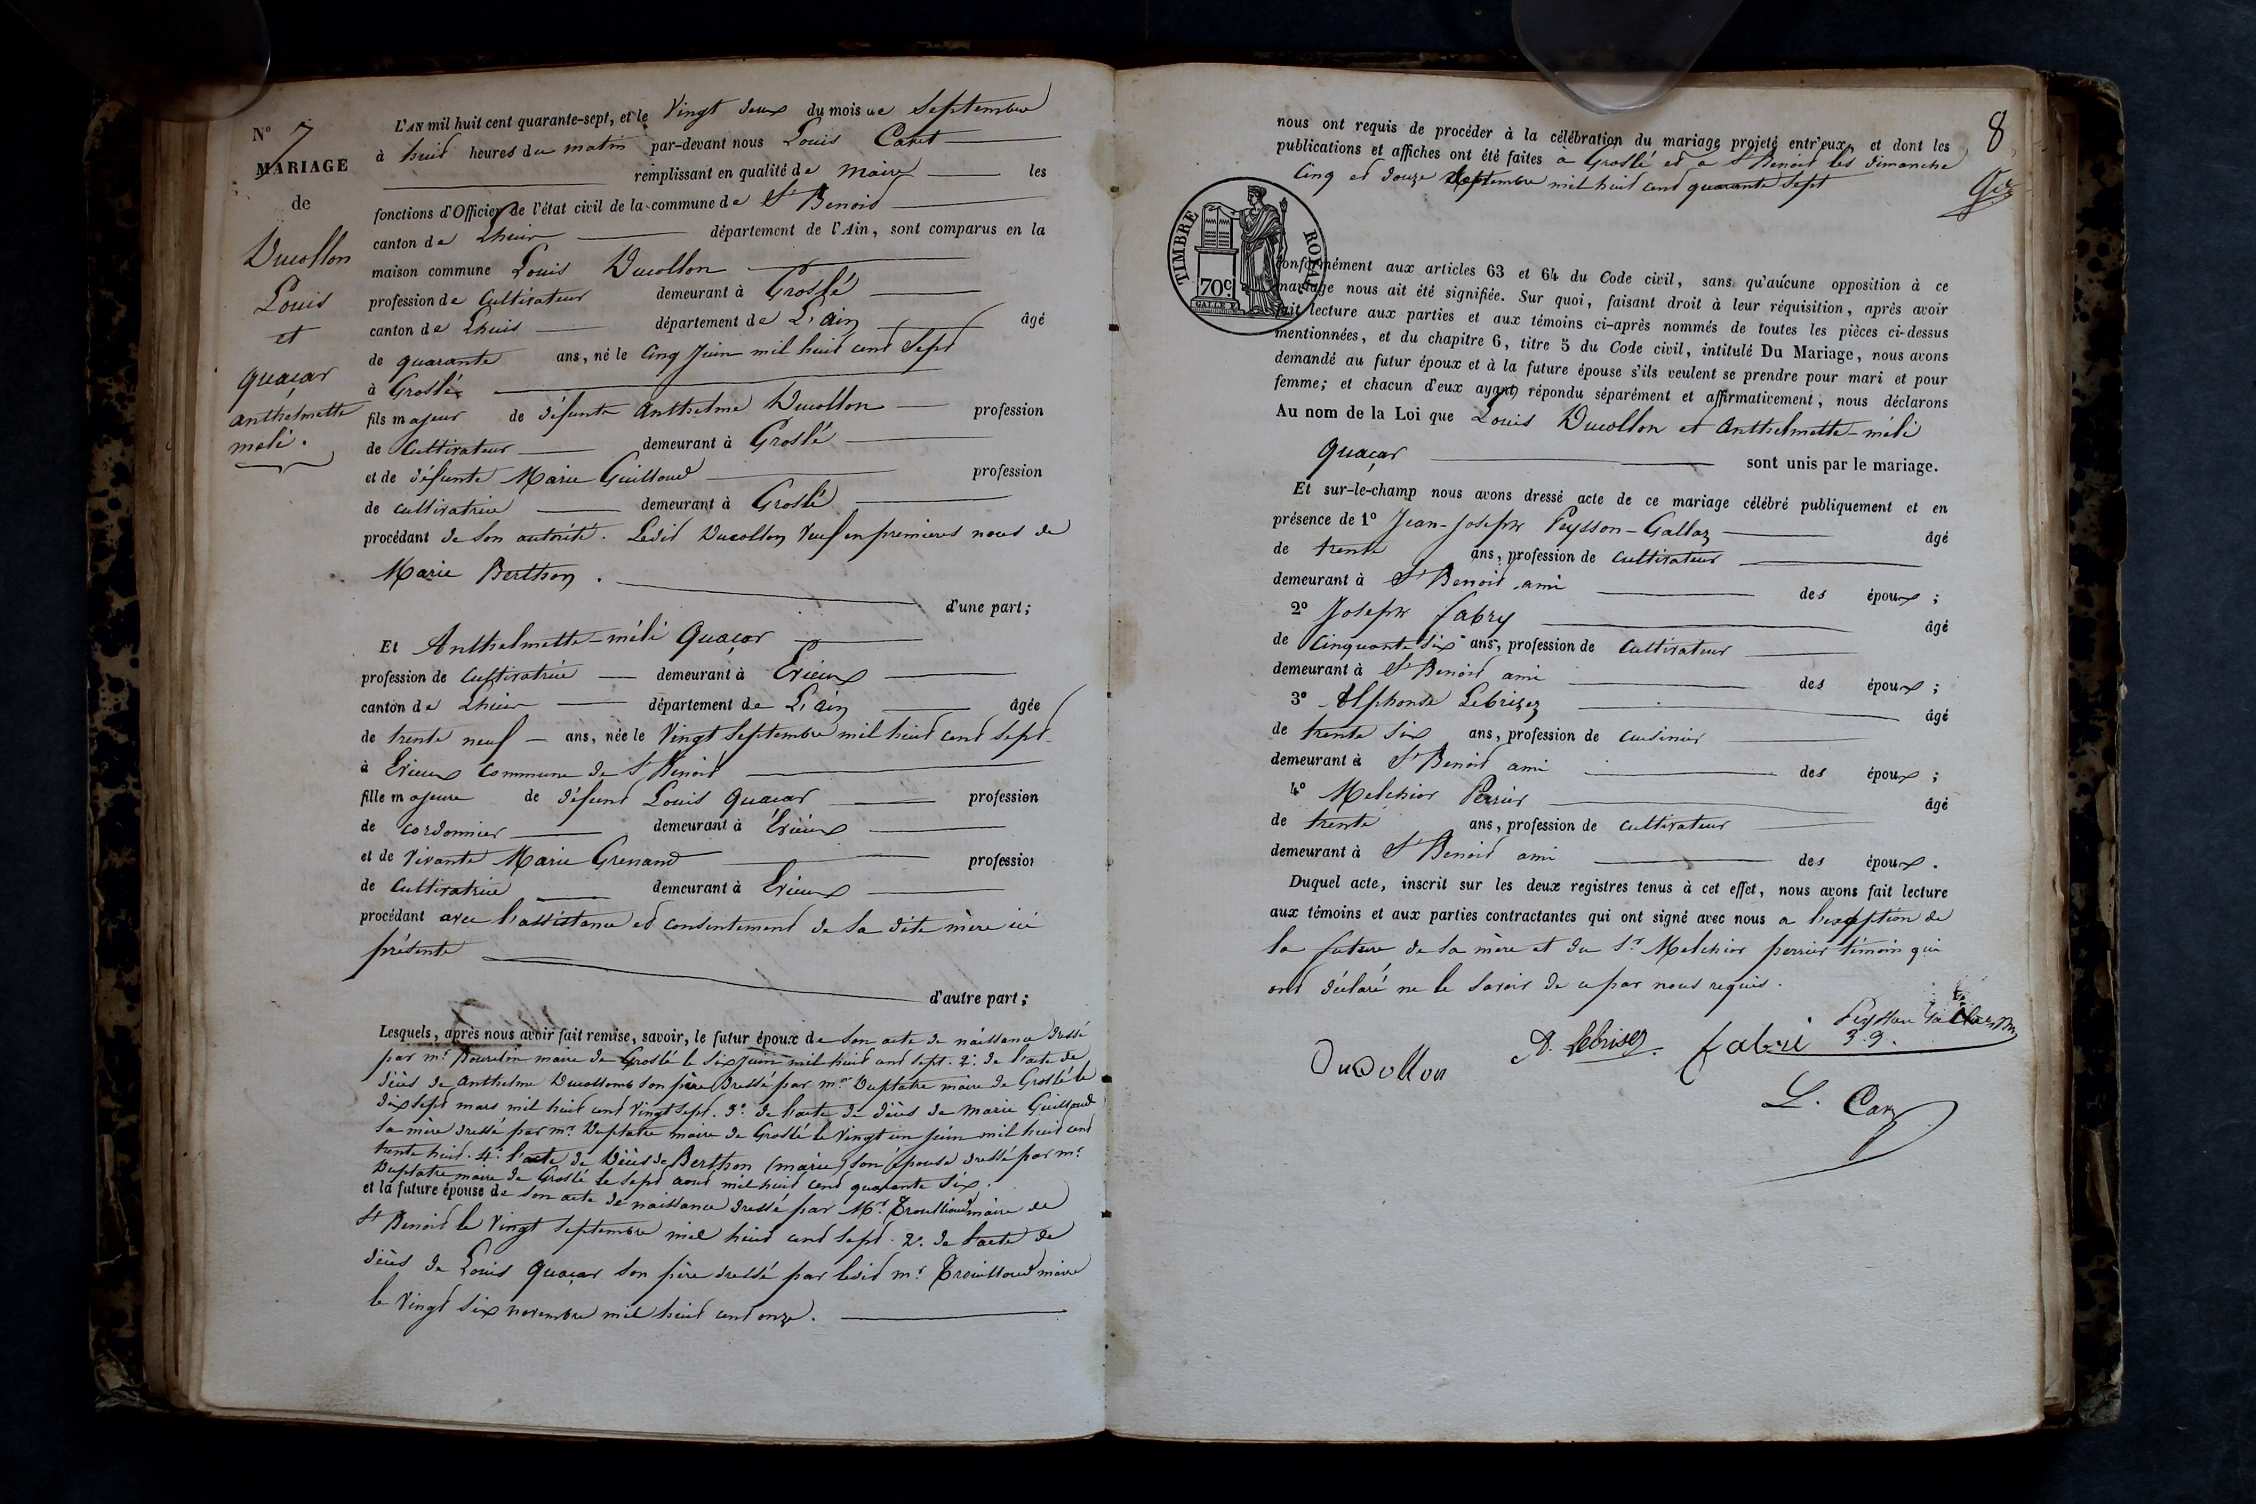 N° 7
MARIAGE
de
Ducollon
Louis
et
quaçar
anthelmette
méli.
L'AN mil huit cent quarante-sept, et le Vingt deux du mois de Septembre
à huit heures du matin par-devant nous Louis
remplissant en qualité de maire les
fonctions d'Officier de l'état civil de la commune de St Benoit
canton de Lhuis département de l'Ain, sont comparus en la
maison commune Louis Ducollon
profession de Cultivateur demeurant à Groslé
canton de Lhuis département de L'ain âgé
de quarante ans, né le Cinq Juin mil huit cent Sept
à Groslé
fils majeur de défunte Anthelme Ducollon profession
de Cultivateur demeurant à Groslé
et de défunte Marie Guilloud profession
de cultivatrice demeurant à Groslé
procédant de son autorité. Ledit Ducollon Veuf en premieres noces de
Marie Berthon.
d'une part;
Et Anthelmette-méli Quaçar
profession de Cultivatrice demeurant à Evieux
canton de Lhuis département de L'ain âgée
de trente neuf ans, née le Vingt Septembre mil huit cent sept
à Evieux commune de St Benoit
fille majeure de défunt Louis quaçar profession
de cordonnier demeurant à Evieux
et de Vivante Marie Grenand profession
de Cultivatrice demeurant à Evieux
procédant avec l'assistance et consentement de sa dite mère ici
présente
d'autre part;
Lesquels, après nous avoir fait remise, savoir, le futur époux de son acte de naissance dressé
par mr maire de Groslé le six juin mil huit cent sept. 2° de l'acte de
décès de anthelme Ducollon son père dressé par mr Duplatre maire de Groslé le
dix sept mars mil huit cent vingt sept. 3° de l'acte de décès de marie Guilloud
sa mère dressé par mr Duplatre maire de Groslé le vingt un juin mil huit cent
trente huit. 4° l'acte de Décès de Berthon (marie) son épouse dressé par mr
Duplatre maire de Groslé le sept aout mil huit cent quarante six.
et la future épouse de son acte de naissance dressé par Mr Trouilloud maire de
St Benoit le Vingt septembre mil huit cent sept. 2° de l'acte de
décès de Louis quaçar son père dressé par ledit mr Trouilloud maire
le Vingt six novembre mil huit cent onze.
8
nous ont requis de procéder à la célébration du mariage projeté entr'eux, et dont les
publications et affiches ont été faites a Groslé et a St Benoit les dimanche
Cinq et douze septembre mil huit cent quarante sept
TIMBRE ROYAL
70c
conformément aux articles 63 et 64 du Code civil, sans qu'aucune opposition à ce
mariage nous ait été signifiée. Sur quoi, faisant droit à leur réquisition, après avoir
fait lecture aux parties et aux témoins ci-après nommés de toutes les pièces ci-dessus
mentionnées, et du chapitre 6, titre 5 du Code civil, intitulé Du Mariage, nous avons
demandé au futur époux et à la future épouse s'ils veulent se prendre pour mari et pour
femme; et chacun d'eux ayant répondu séparément et affirmativement, nous déclarons
Au nom de la Loi que Louis Ducollon et Anthelmette-méli
quaçar sont unis par le mariage.
Et sur-le-champ nous avons dressé acte de ce mariage célébré publiquement et en
présence de 1° Jean-Joseph Peysson-Gallaz âgé
de trente ans, profession de cultivateur
demeurant à St Benoit ami des époux;
2° Joseph fabry âgé
de Cinquante six ans, profession de Cultivateur
demeurant à St Benoit ami des époux;
3° Alphonse Lebrisez âgé
de trente six ans, profession de cuisinier
demeurant à St Benoit ami des époux;
4° Melchior Perrier âgé
de trente ans, profession de cultivateur
demeurant à St Benoit ami des époux.
Duquel acte, inscrit sur les deux registres tenus à cet effet, nous avons fait lecture
aux témoins et aux parties contractantes qui ont signé avec nous a l'exception de
la future, de sa mère et du Sr Melchior perrier témoin qui
ont déclaré ne le savoir de ce par nous requis.
Ducollon
A. Lebrisez
fabri
Peysson
L.